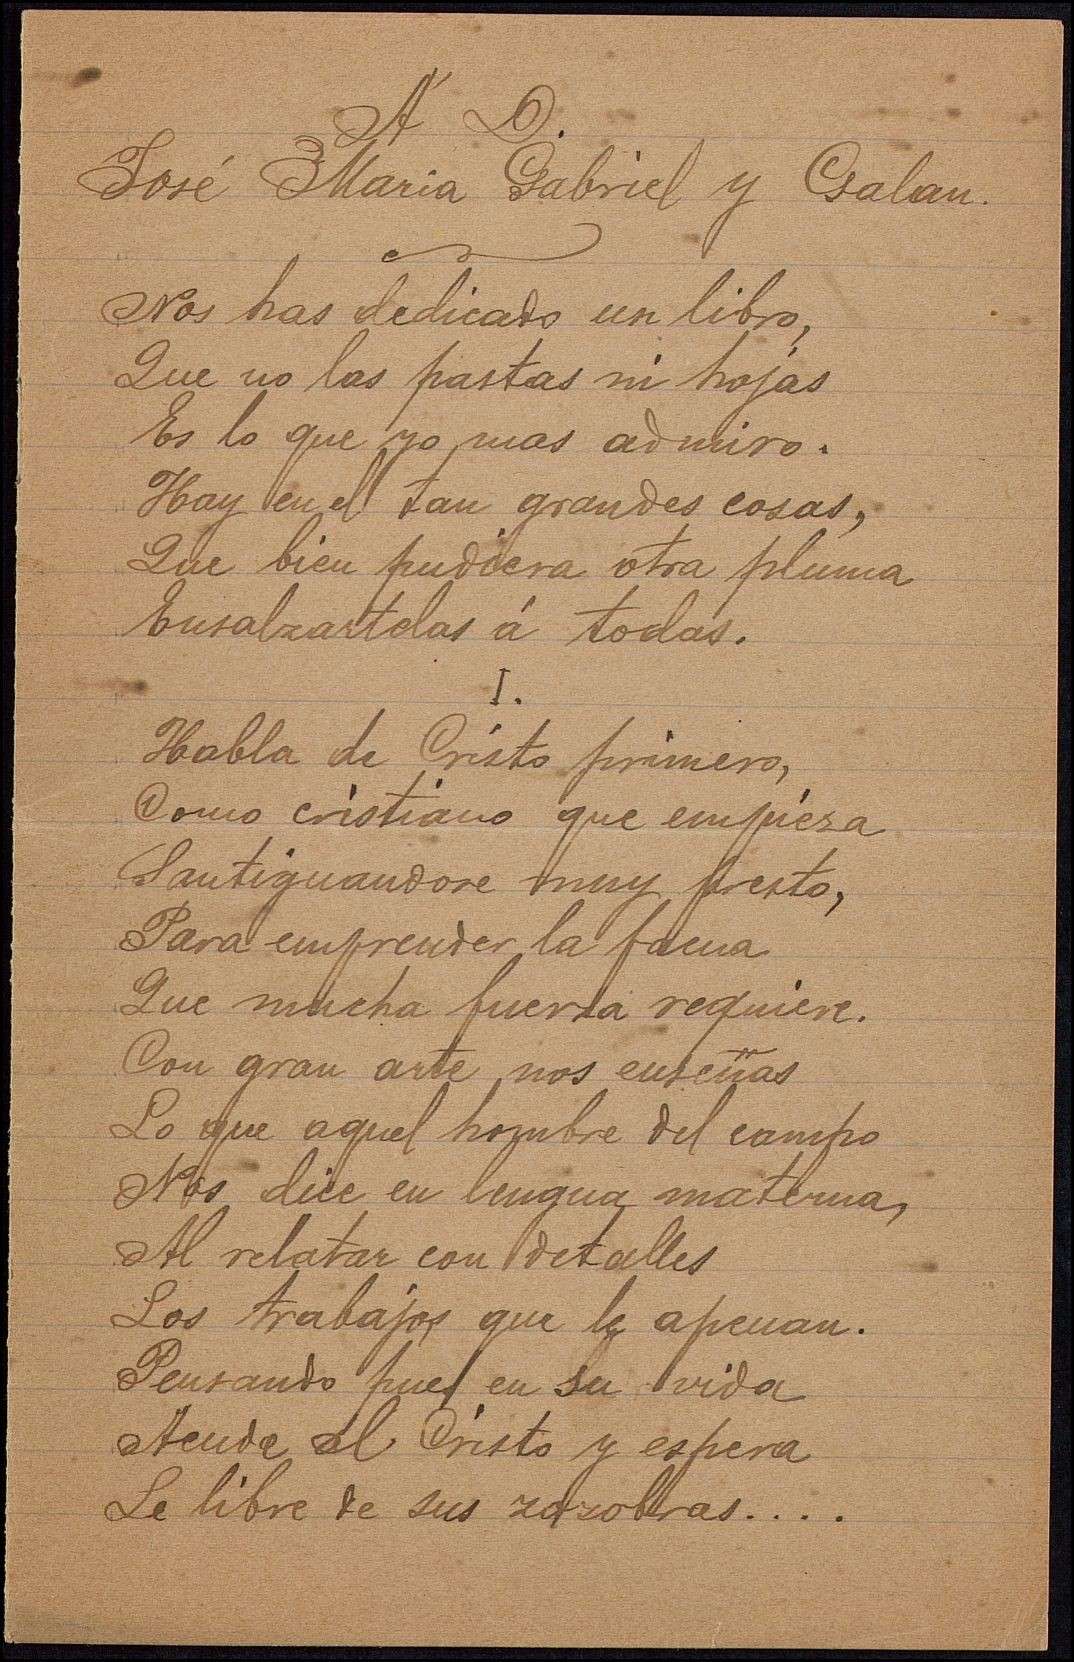 Á D.
José Maria Gabriel y Galan.
Nos has dedicado un libro,
Que no las pastas ni hojas
Es lo que yo mas admiro.
Hay en el tan grandes cosas,
Que bien pudiera otra pluma
Ensalzartelas á todas.
I.
Habla de Cristo primero,
Como cristiano que empieza
Santiguandose muy presto,
Para emprender la faena
Que mucha fuerza requiere.
Con gran arte nos enseñas
Lo que aquel hombre del campo
Nos dice en lengua materna,
Al relatar con detalles
Los trabajos que le apenan.
Pensando pues en su vida
Acude al Cristo y espera
Le libre de sus zozobras....